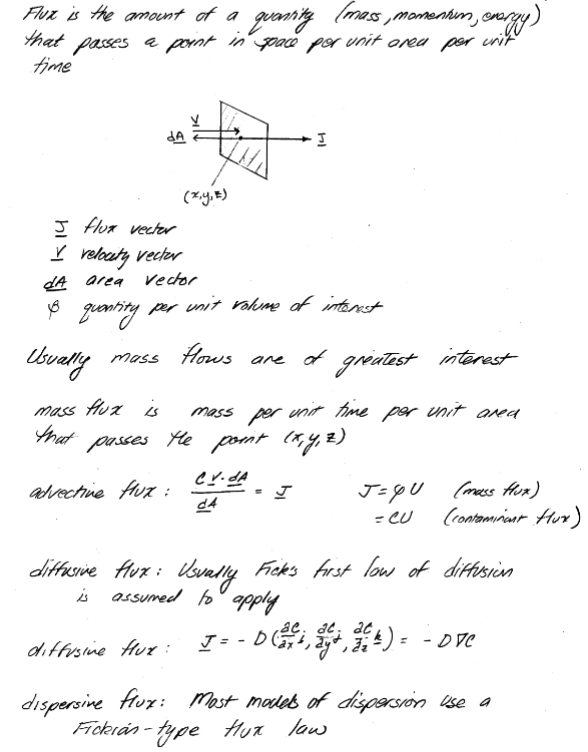 Flux is the amount of a quantity (mass, momentum, energy)
that passes a point in space per unit area per unit
time
V
dA
J
(x,y,z)
J flux vector
V velocity vector
dA area vector
φ quantity per unit volume of interest
Usually mass flows are of greatest interest
mass flux is mass per unit time per unit area
that passes the point (x,y,z)
advective flux : C V·dA / dA = J J = φU (mass flux)
= CU (contaminant flux)
diffusive flux : Usually Fick's first law of diffusion
is assumed to apply
diffusive flux : J = - D (∂C/∂x i, ∂C/∂y j, ∂C/∂z k) = - D∇C
dispersive flux: Most models of dispersion use a
Fickian-type flux law